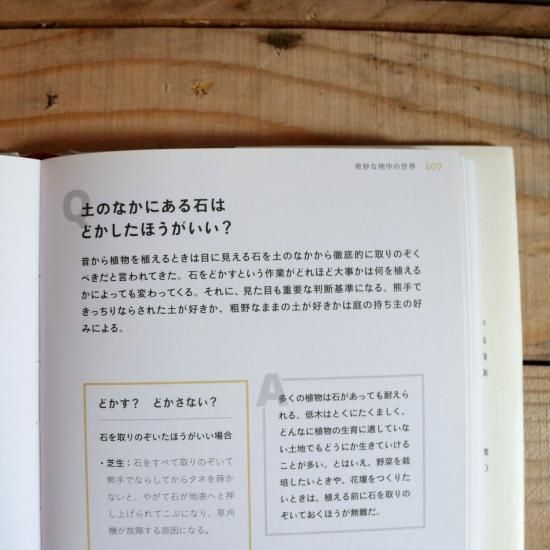 奇妙な地中の世界 107
Q
土のなかにある石は
どかしたほうがいい？
昔から植物を植えるときは目に見える石を土のなかから徹底的に取りのぞく
べきだと言われてきた。石をどかすという作業がどれほど大事かは何を植える
かによっても変わってくる。それに、見た目も重要な判断基準になる。熊手で
きっちりならされた土が好きか、粗野なままの土が好きかは庭の持ち主の好
みによる。
どかす？ どかさない？
石を取りのぞいたほうがいい場合
・芝生：石をすべて取りのぞいて
熊手でならしてからタネを蒔か
ないと、やがて石が地表へと押
し上げられてこぶになり、草刈
機が故障する原因になる。
A
多くの植物は石があっても耐えら
れる。低木はとくにたくましく、
どんなに植物の生育に適していな
い土地でもどうにか生きていける
ことが多い。とはいえ、野菜を栽
培したいときや、花壇をつくりた
いときは、植える前に石を取りの
ぞいておくほうが無難だ。